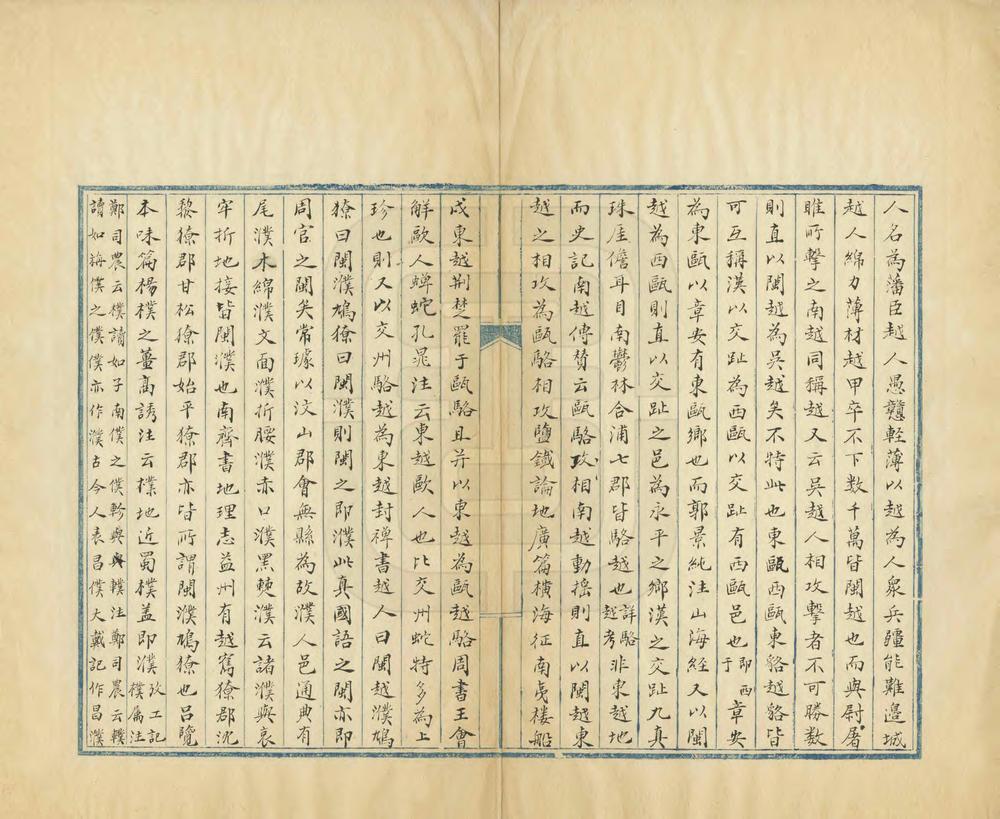 人名為藩臣越人愚戇輕薄以越為人衆兵彊能難邊城
越人綿力薄材越甲卒不下數千萬皆閩越也而與尉屠
睢所擊之南越同稱越又云吳越人相攻擊者不可勝數
則直以閩越為吳越矣不特此也東甌西甌東貉越貉皆
可互稱漢以交趾為西甌以交趾有西甌邑也即西于章安
為東甌以章安有東甌鄉也而郭景純注山海經又以閩
越為西甌則直以交趾之邑為永平之鄉漢之交趾九真
珠厓儋耳日南鬱林合浦七郡皆駱越也詳駱越考非東越地
而史記南越傳贊云甌駱攻相南越動搖則直以閩越東
越之相攻為甌駱相攻鹽鐵論地廣篇橫海征南夷樓船
戍東越荆楚罷于甌駱且并以東越為甌越駱周書王會
觧歐人蟬蛇孔晁注云東越歐人也比交州蛇特多為上
珍也則又以交州駱越為東越封禪書越人曰閩越濮鳩
獠曰閩濮鳩獠曰閩濮則閩之即濮此真國語之閩亦即
周官之閩矣常璩以汶山郡會無縣為故濮人邑通典有
尾濮木綿濮文面濮折腰濮赤口濮黑僰濮云諸濮與哀
牢折地接皆閩濮也南齊書地理志益州有越嶲獠郡沈
黎獠郡甘松獠郡始平獠郡亦皆所謂閩濮鳩獠也呂覽
本味篇楊樸之薑高誘注云樸地近蜀樸盖即濮攷工記樸属注
鄭司農云樸讀如子南僕之僕軫與轐注鄭司農云轐
讀如旃僕之僕僕亦作濮古今人表昌僕大戴記作昌濮